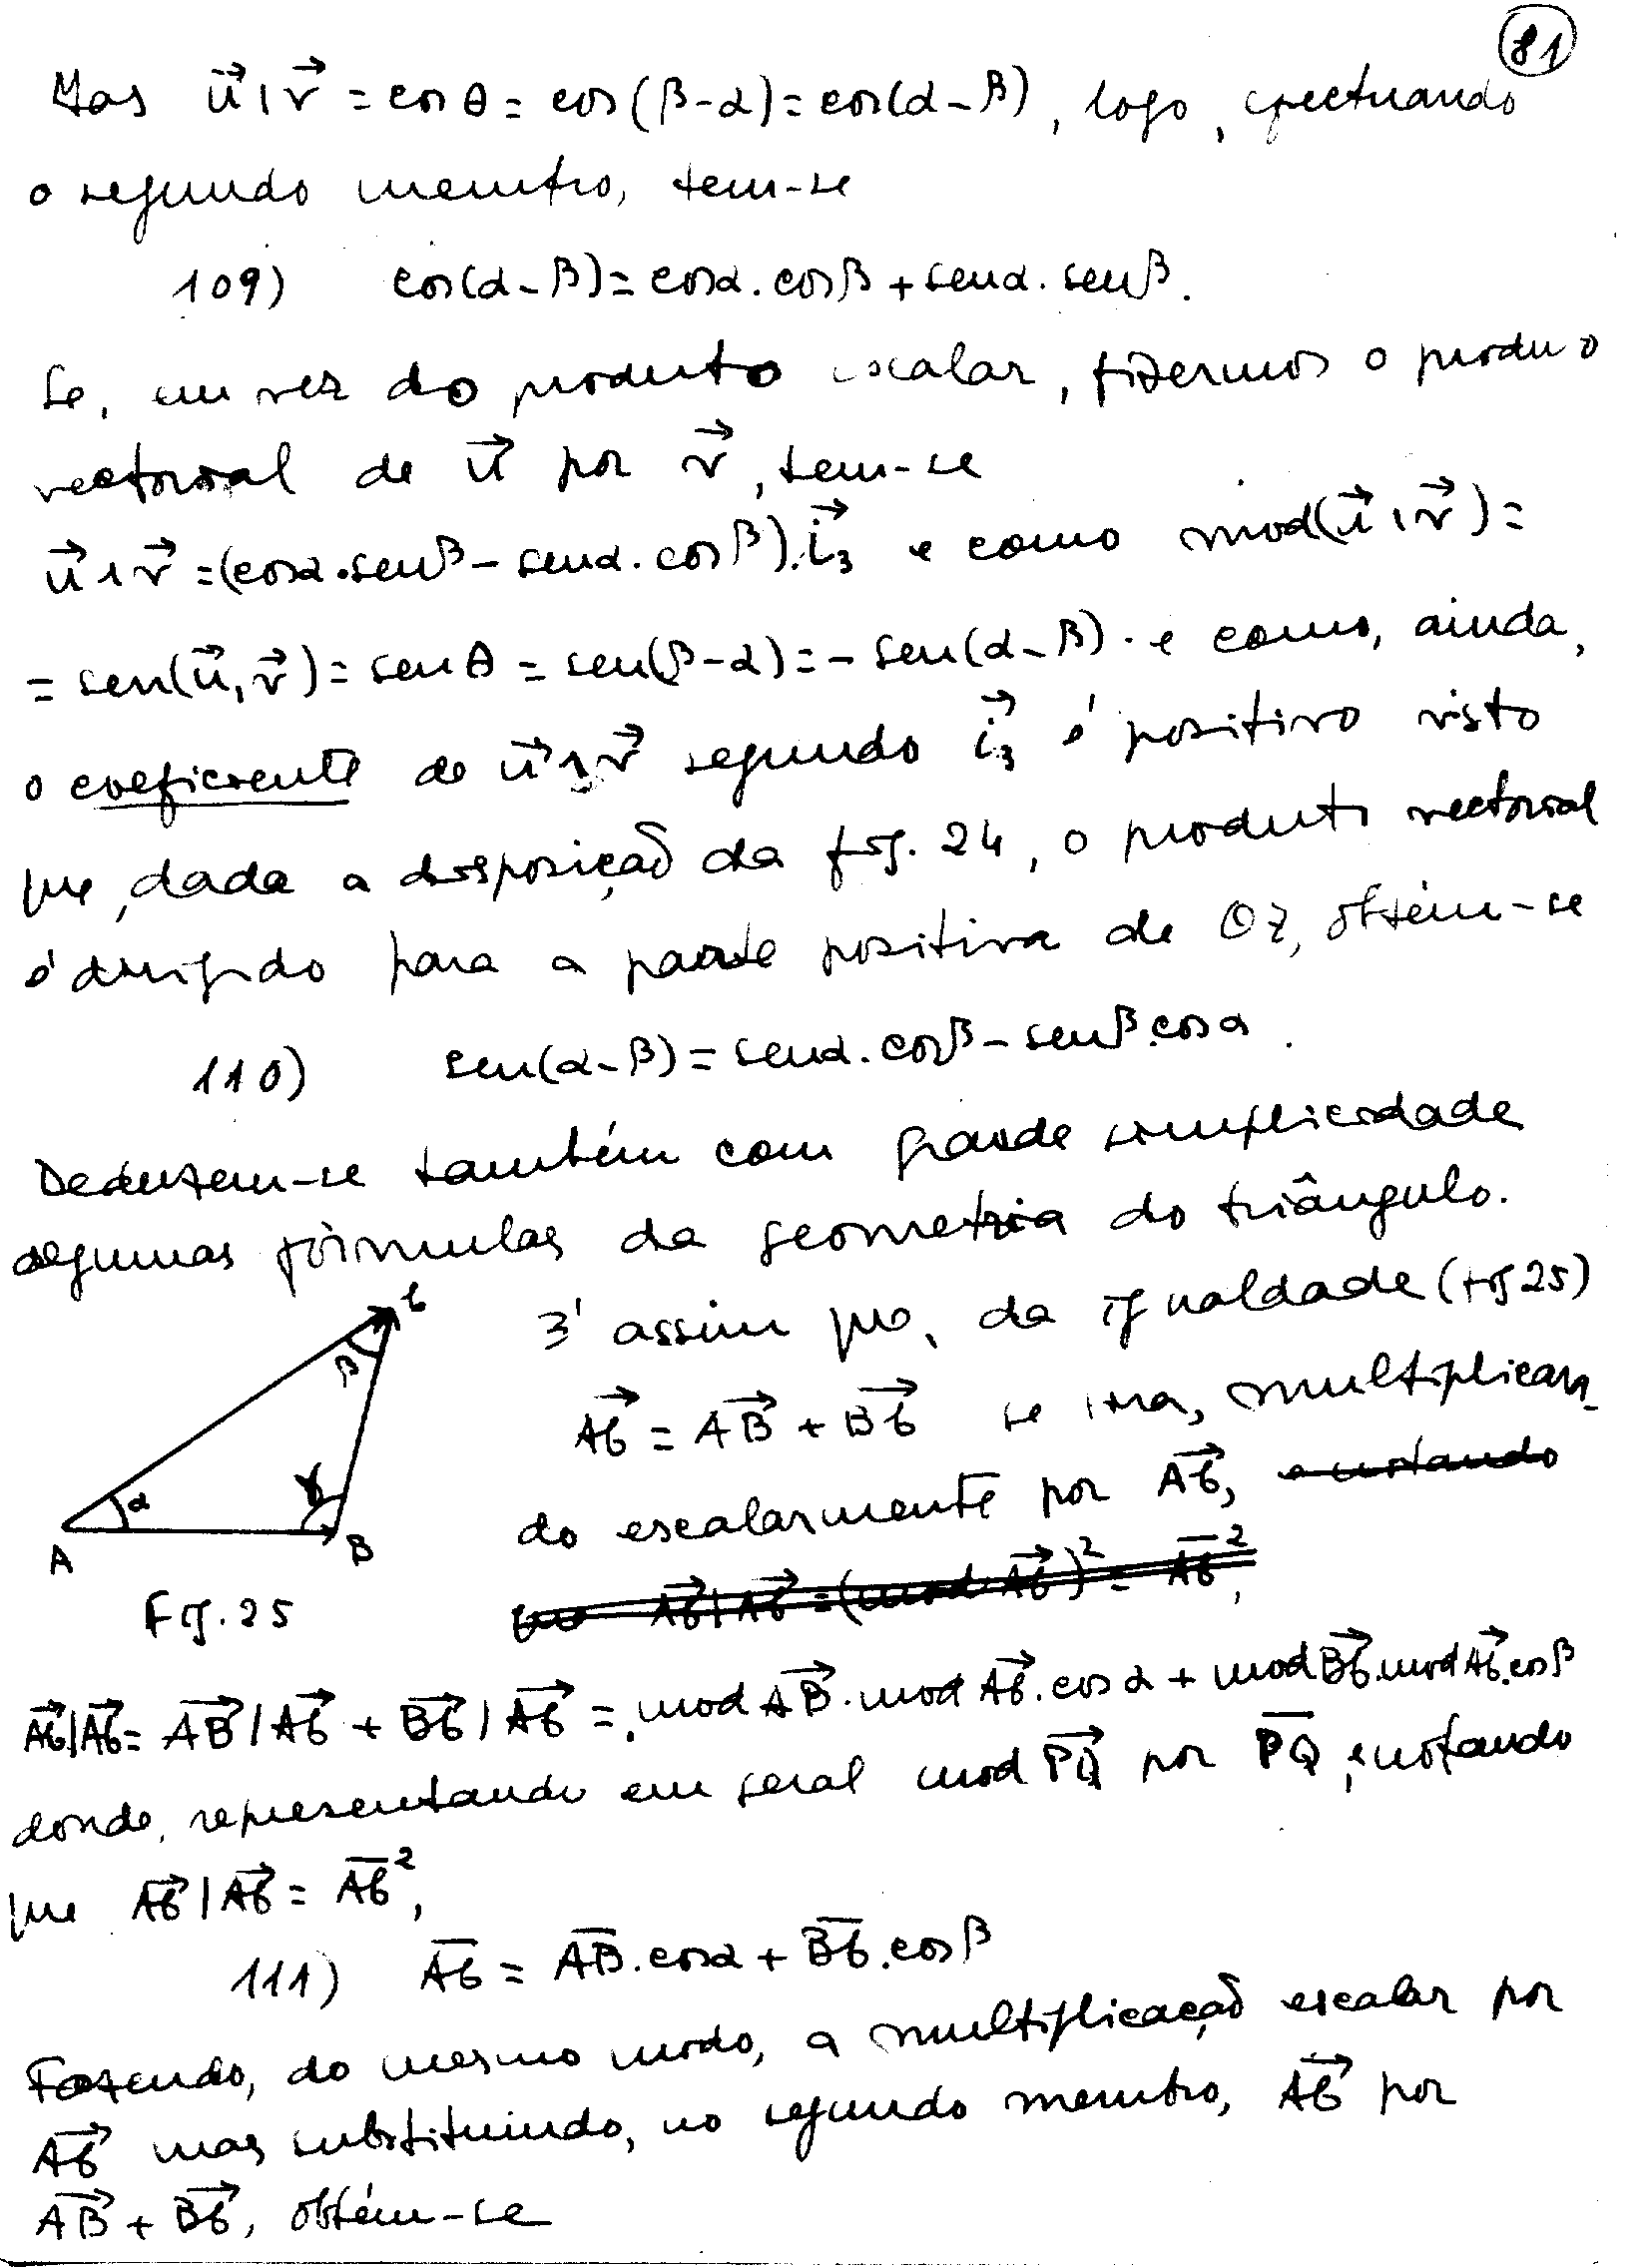 81
Mas u⃗|v⃗ = cos θ = cos(β-α) = cos(α-β), logo, efectuando
o segundo membro, tem-se
109) cos(α-β) = cosα.cosβ + senα.senβ.
Se, em vez do produto escalar, fizermos o produto
vectorial de u⃗ por v⃗, tem-se
u⃗∧v⃗ = (cosα.senβ - senα.cosβ).i⃗₃ e como mod(u⃗∧v⃗) =
= sen(u⃗,v⃗) = sen θ = sen(β-α) = -sen(α-β) . e como, ainda,
o coeficiente de u⃗∧v⃗ segundo i⃗₃ é positivo visto
que, dada a disposição da fig. 24, o produto vectorial
é dirigido para a parte positiva de OZ, obtém-se
110) sen(α-β) = senα.cosβ - senβ.cosα.
Deduzem-se também com grande simplicidade
algumas fórmulas da geometria do triângulo.
É assim que, da igualdade (fig 25)
A⃗C⃗ = A⃗B⃗ + B⃗C⃗ se tira, multiplican-
do escalarmente por A⃗C⃗, e notando
que A⃗C⃗|A⃗C⃗ = (mod A⃗C⃗)² = A̅C̅²,
C
β
α
γ
A
B
Fig. 25
A⃗C⃗|A⃗C⃗ = A⃗B⃗|A⃗C⃗ + B⃗C⃗|A⃗C⃗ = mod A⃗B⃗.mod A⃗C⃗.cos α + mod B⃗C⃗.mod A⃗C⃗.cosβ
donde, representando em geral mod P⃗Q⃗ por P̅Q̅, e notando
que A⃗C⃗|A⃗C⃗ = A̅C̅²,
111) A̅C̅ = A̅B̅.cosα + B̅C̅.cosβ
Fazendo, do mesmo modo, a multiplicação escalar por
A⃗C⃗ mas substituindo, no segundo membro, A⃗C⃗ por
A⃗B⃗ + B⃗C⃗, obtém-se